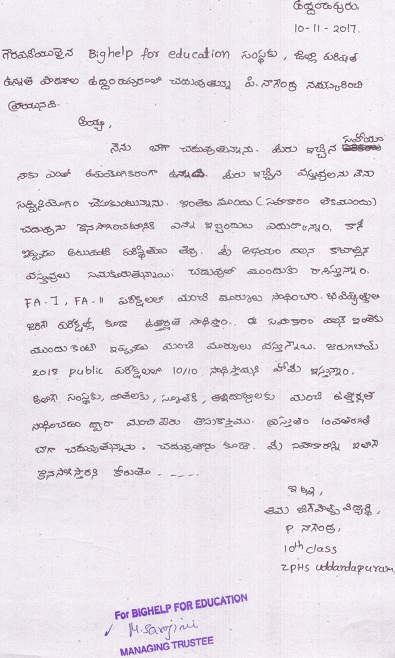 ఉద్దండాపురం.
10-11-2017.
గౌరవనీయులైన Bighelp for education సంస్థకు, జిల్లా పరిషత్
ఉన్నత పాఠశాల చదువుతున్న పి. నాగేంద్ర నమస్కరించి
వ్రాయునది.
అయ్యా,
నేను బాగా చదువుతున్నాను. మీరు ఇచ్చిన సహాయం
నాకు ఎంతో ఉపయోగకరంగా ఉన్నది. మీరు ఇచ్చిన వస్తువులను నేను
సద్వినియోగం చేసుకుంటున్నాను. ఇంతకు ముందు (సహకారం లేకముందు)
చదువును కొనసాగించటానికి ఎన్నో ఇబ్బందులు ఎదుర్కొన్నాం. కానీ
ఇప్పుడు అటువంటి పరిస్థితులు లేవు. మీ వలన కావాల్సిన
వస్తువులు సమకూరుతున్నాయి. చదువులో ముందుకు
FA-I, FA-II పరీక్షలలో మంచి మార్కులు సాధించాం. భవిష్యత్తులో
జరిగే పరీక్షల్లో కూడా ఉత్తీర్ణత సాధిస్తాం. ఈ సహకారం వలన ఇంతకు
ముందు కంటే ఇప్పుడు మంచి మార్కులు వస్తున్నాయి. జరుగబోయే
2018 public పరీక్షలలో 10/10 సాధిస్తామని హామీ ఇస్తున్నాం.
అలాగే సంస్థకు, దాతలకు, స్కూలుకి, మంచి ఉత్తీర్ణత
సాధించడం ద్వారా మంచి పేరు తీసుకొస్తాము. ప్రస్తుతం 10వ తరగతి
బాగా చదువుతున్నాను. చదువుతాను కూడా. మీ సహకారాన్ని ఇలాగే
కొనసాగిస్తారని కోరుతూ -----.
ఇట్లు,
తమ బిగ్‌హెల్ప్ విద్యార్థి,
P. నాగేంద్ర,
10th class
ZPHS uddandapuram.
For BIGHELP FOR EDUCATION
M. Sarojini
MANAGING TRUSTEE